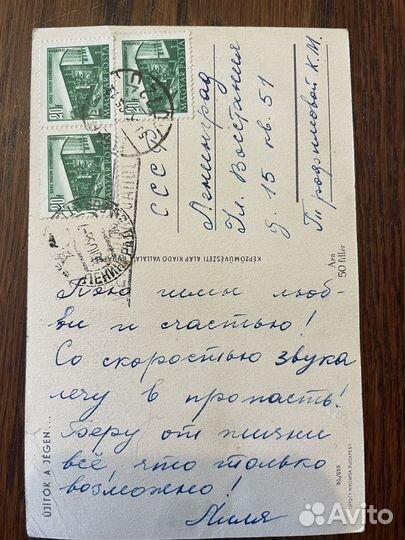 20f
MAGYAR POSTA
20f
MAGYAR POSTA
20f
MAGYAR POSTA
ЛЕНИНГРАД
СССР
Ленинград
Ул. Восстания
д. 15 кв. 51
Трофимовой К.М.
KÉPZŐMŰVÉSZETI ALAP KIADÓ VÁLLALATA
Ára
50 fillér
Пою гимы люб-
ви и счастью!
Со скоростью звука
лечу в пропасть!
Беру от жизни
всё, что только
возможно!
Лиля
ÚJÍTÓK A JÉGEN...
90/555
Avito